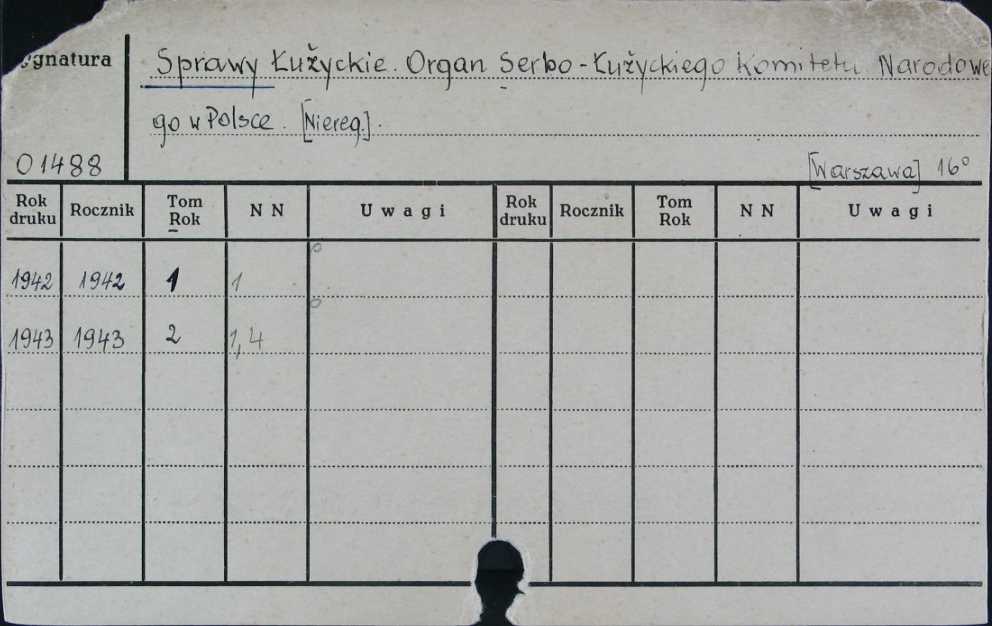 Sygnatura
Sprawy Łużyckie. Organ Serbo-Łużyckiego Komitetu Narodowe
go w Polsce. [Niereg.].
01488
[Warszawa] 16°
Rok druku Rocznik Tom Rok NN Uwagi Rok druku Rocznik Tom Rok NN Uwagi
1942 1942 1 1
1943 1943 2 1,4